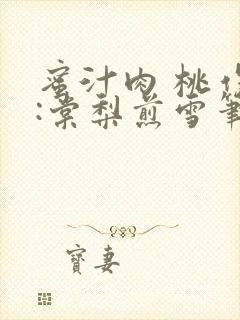 蜜汁肉桃
:棠梨煎雪筆
寶妻